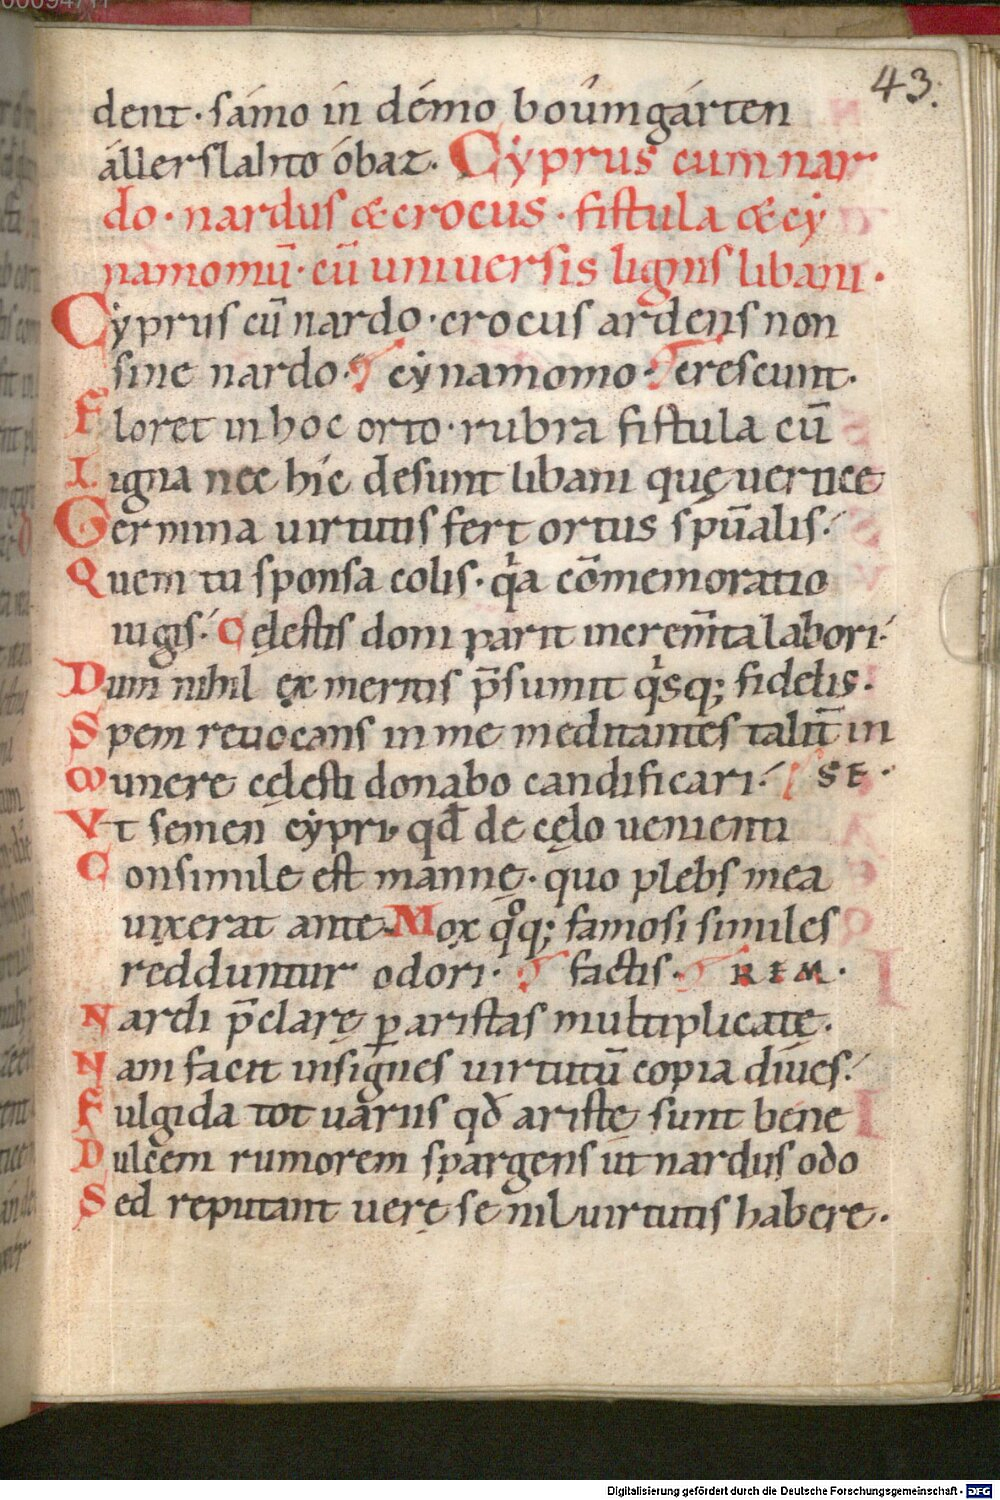 43.
dent · sámo in démo boûmgárten
állerslahto óbaz. Cyprus cum nar
do · nardus & crocus · fistula & cy
namomū · cū uniuersis lignis libani ·
Cyprus cū nardo · crocus ardens non
sine nardo · cynamomo · crescunt.
Floret in hoc orto · rubra fistula cū
Ligna nec hic desunt libani quę uertice
Germina uirtutis fert ortus spūalis.
Quem tu sponsa colis · qͥa cōmemoratio
iugis. Cęlestis doni parit increm̄ta labori.
Dum nihil ex meritis p̄sumit qͥsq; fidelis.
Spem reuocans in me meditantes talit̄ in
Munere cęlesti donabo candificari. SE ·
Vt semen cypri qđ de cęlo uenienti
Consimile est mannę · quo plebs mea
uixerat ante Mox qͦq; famosi similes
redduntur odori · factis · REM ·
Nardi p̄clarę ꝑ aristas multiplicatę.
Nam facit insignes uirtutū copia diues.
Fulgida tot uariis qđ aristę sunt bene
Dulcem rumorem spargens ut nardus odo
Sed reputant uerę se nil uirtutis habere.
Digitalisierung gefördert durch die Deutsche Forschungsgemeinschaft - DFG